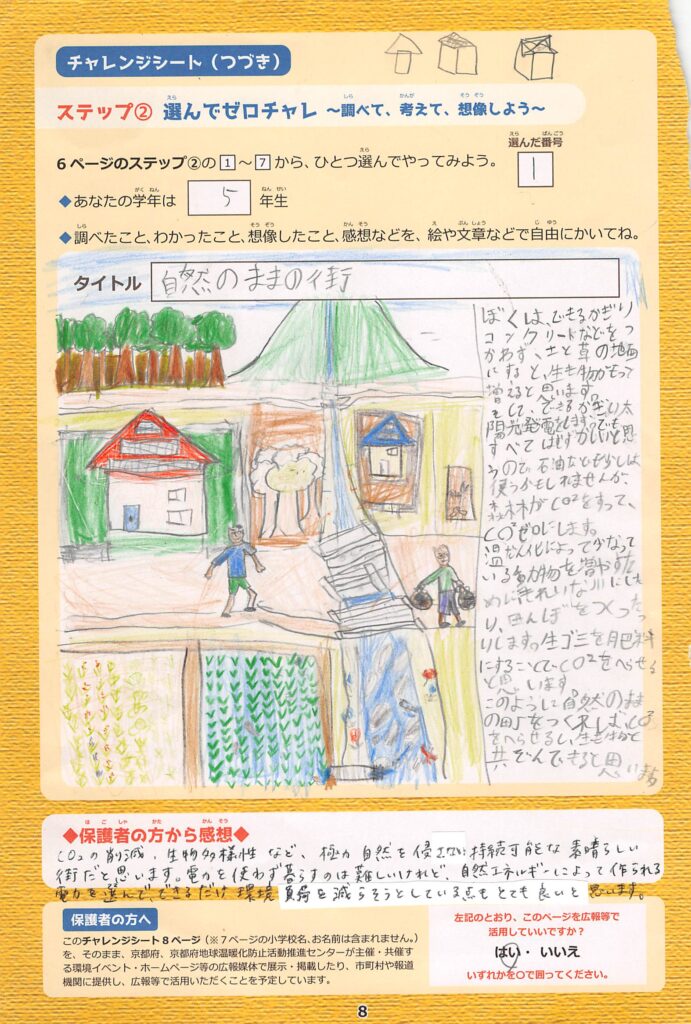 チャレンジシート（つづき）
ステップ② 選んでゼロチャレ ～調べて、考えて、想像しよう～
6ページのステップ②の1～7から、ひとつ選んでやってみよう。
選んだ番号
1
◆あなたの学年は 5 年生
◆調べたこと、わかったこと、想像したこと、感想などを、絵や文章などで自由にかいてね。
タイトル 自然のままの街
ぼくは、できるかぎり
コンクリートなどをつ
かわず、土と草の地面
にすると、生き物がもって
増えると思います。
そして、できるかぎり太
陽光発電をします。でも、
すべてはむずかしいと思
うので、石油なども少しは
使うかもしれませんが、
森林がCO²をすって、
CO²ゼロにします。
温だん化によってへなって
いる動物を増やすた
めにきれいな川にした
り、田んぼをつくった
りします。生ゴミを肥料
にすることでCO²をへらせる
と思います
このように自然のまま
の町をつくれば、CO²
をへらせるし、生き物と
共ぞんできると思います
◆保護者の方から感想◆
CO₂の削減、生物多様性など、極力自然を侵さない持続可能な素晴らしい
街だと思います。電力を使わず暮らすのは難しいけれど、自然エネルギーによって作られる
電力を選んで、できるだけ環境負荷を減らそうとしている点もとても良いと思います。
保護者の方へ
このチャレンジシート8ページ（※7ページの小学校名、お名前は含まれません。）
を、そのまま、京都府、京都府地球温暖化防止活動推進センターが主催・共催す
る環境イベント・ホームページ等の広報媒体で展示・掲載したり、市町村や報道
機関に提供し、広報等で活用いただくことを予定しています。
左記のとおり、このページを広報等で
活用していいですか？
はい・いいえ
いずれかを○で囲ってください。
8